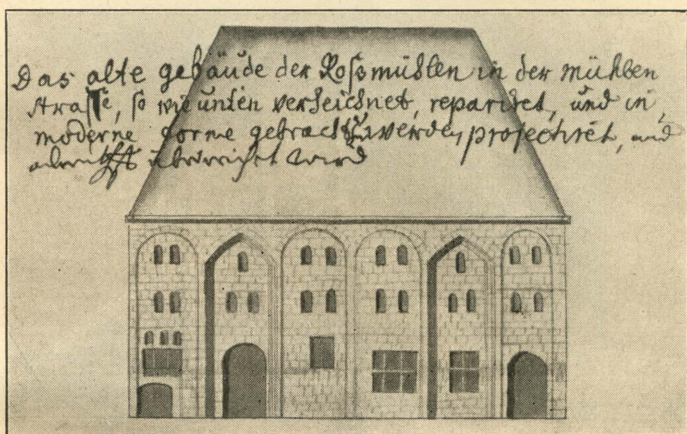 Das alte gebäude der Rossmühlen in der mühlen
strasse, so wie unten verzeichnet, repariret, und in
moderne forme gebracht zu werden projectiret, und
wird